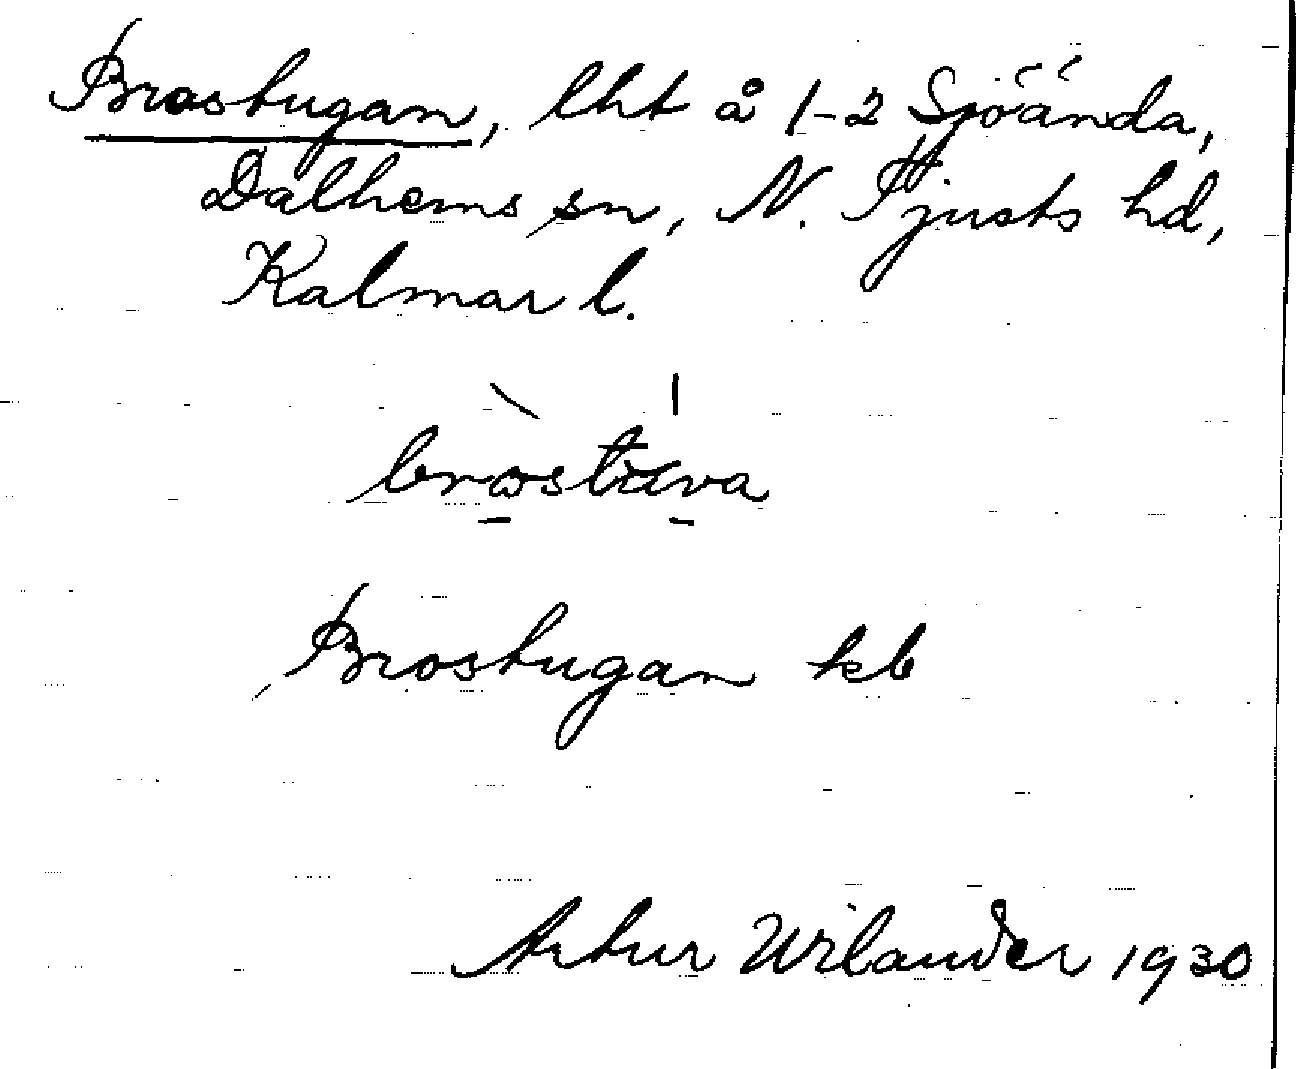 Brostugan, lht å 1-2 Sjöända,
Dalhems sn, N. Tjusts hd,
Kalmar l.
Brostugan kb
Artur Wilander 1930